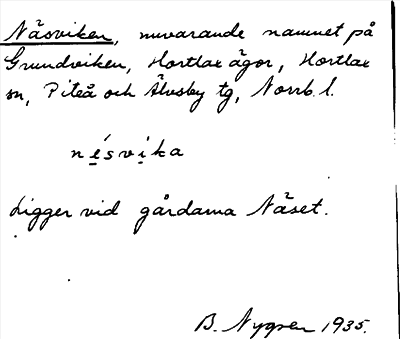 Näsviken, nuvarande namnet på
Grundviken, Hortlax ägor, Hortlax
sn, Piteå och Älvsby tg, Norrb. l.
nésvika
Ligger vid gårdarna Näset.
B. Nygren 1935.